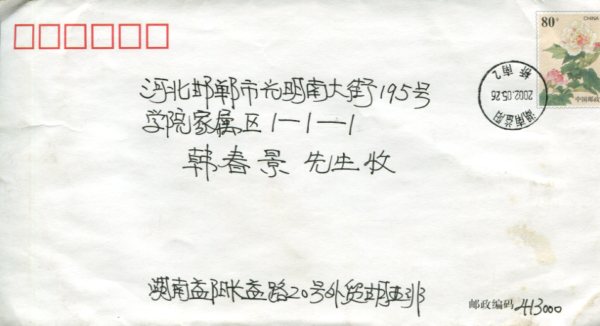 80分
CHINA
中国邮政
湖南益阳
2002.05.26
桥南
河北邯郸市光明南大街195号
学院家属区1-1-1
韩春景 先生收
湖南益阳长益路20号外贸
邮政编码 413000